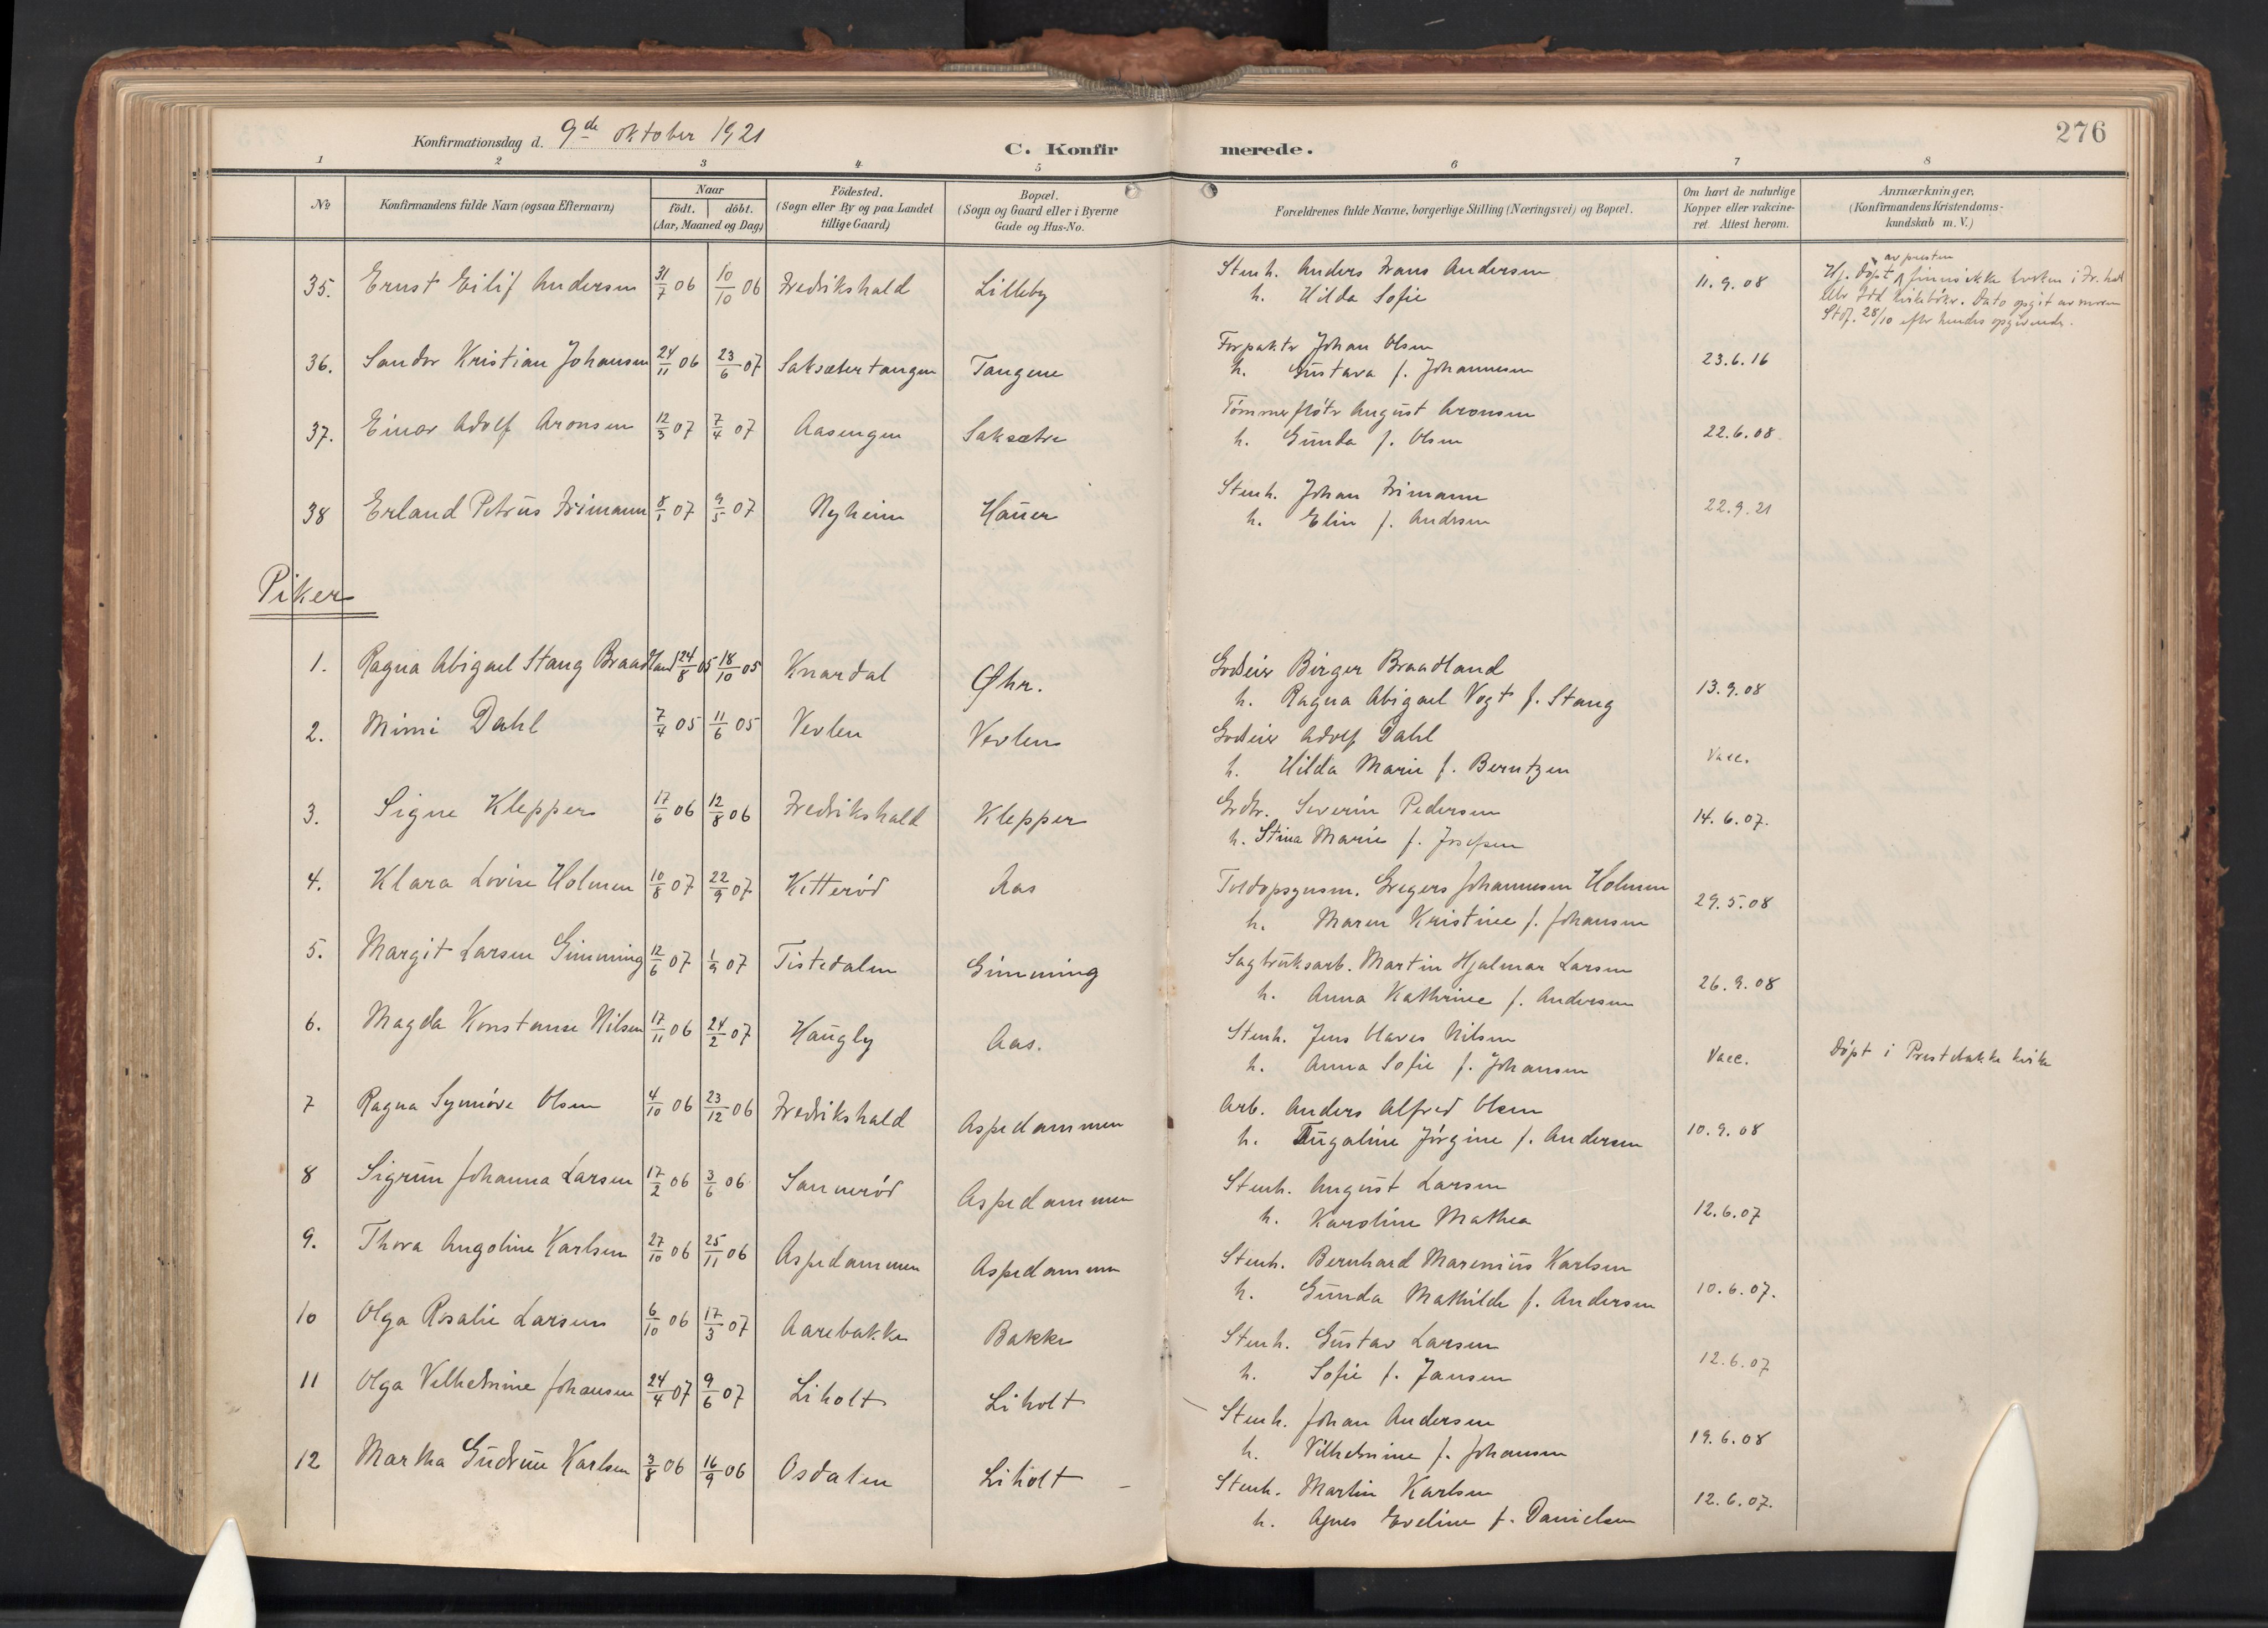 Konfirmationsdag d. 9de Oktober 1921
C. Konfirmerede.
276
1 2 3 4 5 6 7 8
No
Konfirmandens fulde Navn (ogsaa Efternavn)
Naar
födt. döbt.
(Aar, Maaned og Dag)
Födested.
(Sogn eller By og paa Landet
tillige Gaard)
Bopæl.
(Sogn og Gaard eller i Byerne
Gade og Hus-No.
Forældrenes fulde Navne, borgerlige Stilling (Næringsvei) og Bopæl.
Om havt de naturlige
Kopper eller vakcine-
ret. Attest herom.
Anmærkninger.
(Konfirmandens Kristendoms-
kundskab m. V.)
35. Ernst Eilif Andersen 31/7 06 10/10 06 Fredrikshald Lilleby Stenh. Anders Frans Andersen 11.9.08
h. Hilda Sofie
av presten
Hj. døpt finnes ikke hverken i Fr.hald
eller Idd kirkebøker. Dato opgit av moren
Stdf. 28/10 efter hendes opgivende.
36. Sander Kristian Johansen 24/11 06 23/6 07 Saksætertangen Tangene Forpakter Johan Olsen 23.6.16
h. Gustava f. Johannesen
37. Einar Adolf Aronsen 12/3 07 7/4 07 Aasengen Saksætre Tømmerfløter August Aronsen 22.6.08
h. Gunda f. Olsen
38 Erland Petrus Frimann 8/1 07 9/5 07 Nyheim Hauer Stenh. Johan Frimann 22.9.21
h. Elin f. Andersen
Piker
1. Ragna Abigael Stang Braadland 24/8 05 18/10 05 Knardal Øhr. Godseier Birger Braadland 13.9.08
h. Ragna Abigael Vogt f. Stang
2. Mimi Dahl 7/4 05 11/6 05 Vevlen Vevlen Godseier Adolf Dahl Vacc.
h. Hilda Marie f. Berntzen
3. Signe Klepper 17/6 06 12/8 06 Fredrikshald Klepper Grdbr. Severin Pedersen 14.6.07.
h. Stina Marie f. Josefsen
4. Klara Lovise Holmen 10/8 07 22/9 07 Kitterød Aas Toldopsynsm. Gregers Johannesen Holmen 29.5.08
h. Maren Kristine f. Johansen
5. Margit Larsen Gimming 12/6 07 1/9 07 Tistedalen Gimming Sagbruksarb. Martin Hjalmar Larsen 26.9.08
h. Anna Kathrine f. Andersen
6. Magda Konstanse Nilsen 17/11 06 24/2 07 Haugly Aas. Stenh. Jens Olaves Nilsen Vacc. Døpt i Prestebakke kirke
h. Anna Sofie f. Johansen
7 Ragna Synnøve Olsen 4/10 06 23/12 06 Fredrikshald Aspedammen Arb. Anders Alfred Olsen 10.9.08
h. Jørgine f. Andersen
8 Sigrun Johanna Larsen 17/2 06 3/6 06 Sannerød Aspedammen Stenh. August Larsen 12.6.07
h. Karoline Mathea
9. Thora Angoline Karlsen 27/10 06 25/11 06 Aspedammen Aspedammen Stenh. Bernhard Marenius Karlsen 10.6.07.
h. Gunda Mathilde f. Andersen
10 Olga Rosalie Larsen 6/10 06 17/3 07 Aarebakke Bakke Stenh. Gustav Larsen 12.6.07
h. Sofie f. Jansen
11 Olga Vilhelmine Johansen 24/4 07 9/6 07 Liholt Liholt Stenh. Johan Andersen 19.6.08
h. Vilhelmine f. Johansen
12 Martha Gudrun Karlsen 3/8 06 16/9 06 Osdalen Liholt Stenh. Martin Karlsen 12.6.07.
h. Agnes Eveline f. Danielsen